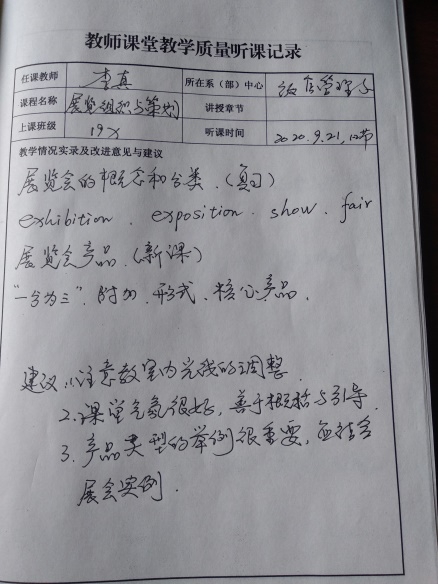 教师课堂教学质量听课记录
任课教师 李真 所在系（部）中心 饭店管理系
课程名称 展览组织与策划 讲授章节
上课班级 19 听课时间 2020.9.21,
教学情况实录及改进意见与建议
展览会的概念和分类.（复习）
exhibition . exposition . show . fair
展览会产品.（新课）
“一分为三”. 附加. 形式. 核心产品.
建议 1. 注意教室内光线的调整.
2. 课堂气氛很好, 善于概括与引导.
3. 产品类型的举例很重要, 应结合
展会实例.